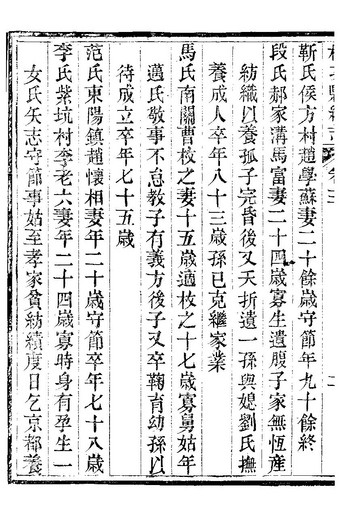 靳氏侯方村趙學蘇妻二十餘歲守節年九十餘終
段氏郝家溝馬富妻二十四歲寡生遺腹子家無恆產
紡織以養孤子完昏後又夭折遺一孫與媳劉氏撫
養成人卒年八十三歲孫已克繼家業
馬氏南關曹枚之妻十五歲適枚之十七歲寡舅姑年
邁氏敬事不怠教子有義方後子又卒鞠育幼孫以
待成立卒年七十五歲
范氏東陽鎮趙懷相妻年二十歲守節卒年七十八歲
李氏紫坑村李老六妻年二十四歲寡時身有孕生一
女氏矢志守節事姑至孝家貧紡績度日乞京都養